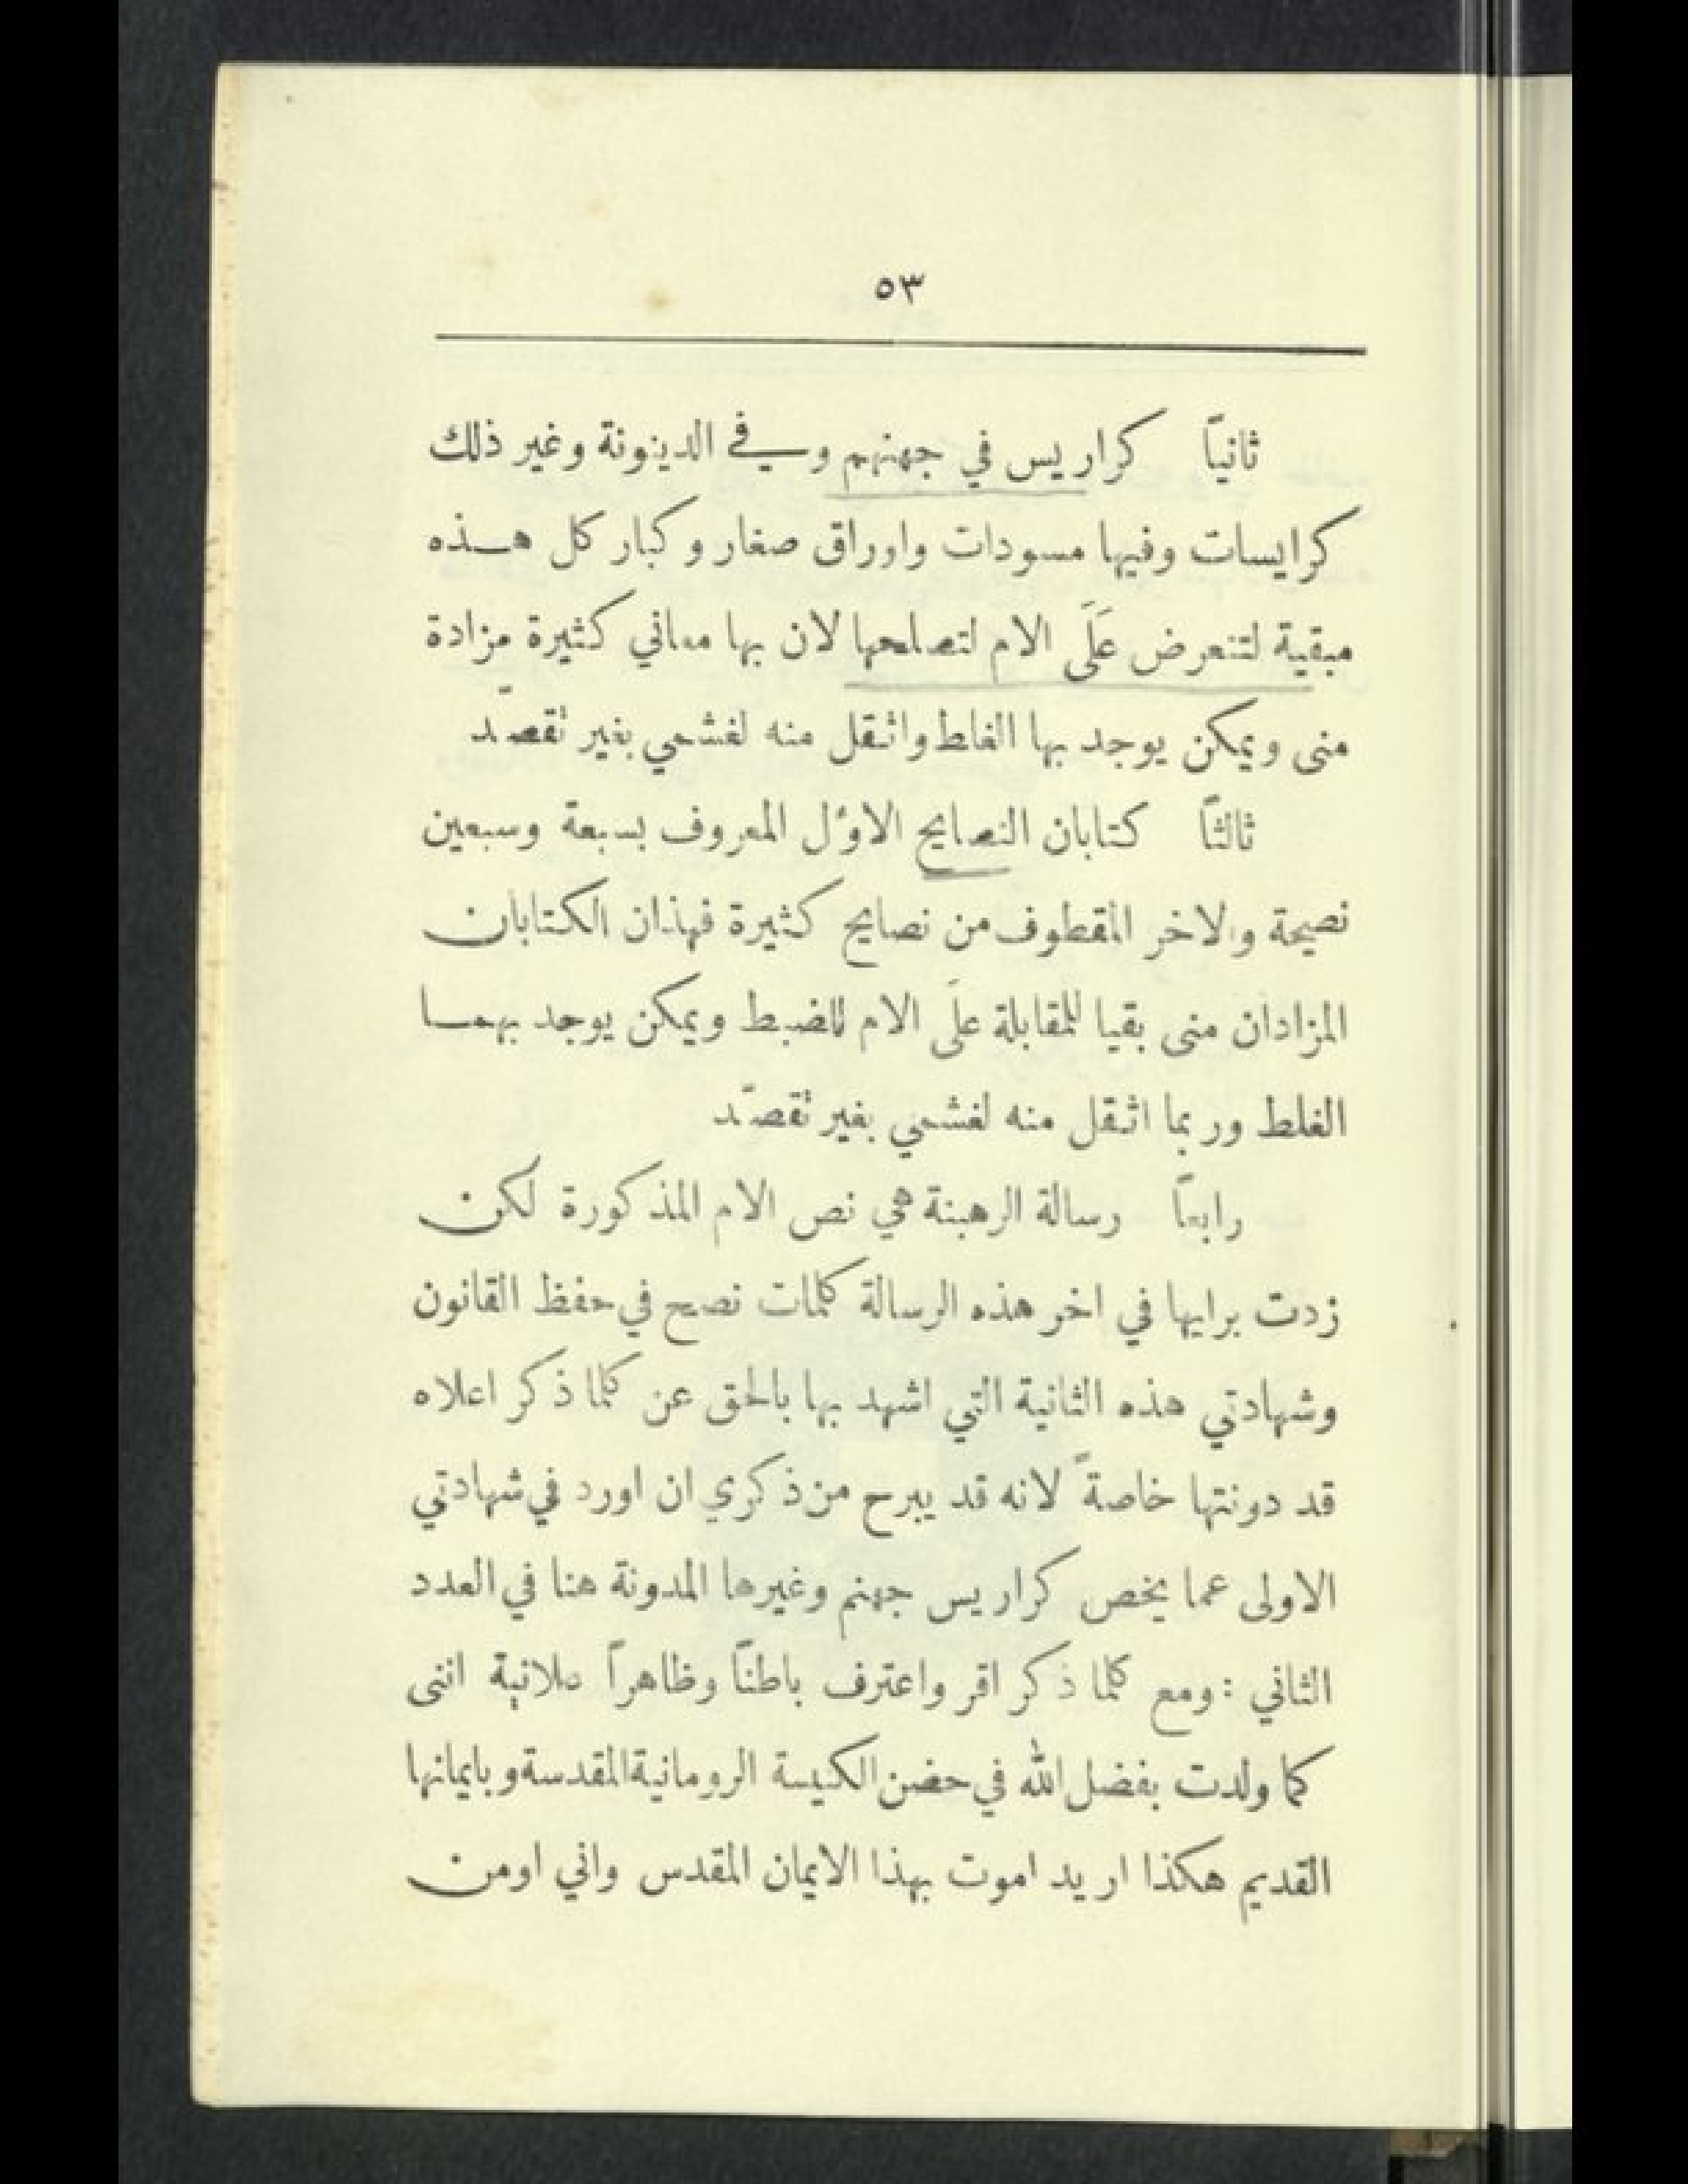 ٥٣
ثانياً كراريس في جهنم وفي الدينونة وغير ذلك
كرايسات وفيها مسودات واوراق صغار وكبار كل هذه
مبقية لتنعرض عَلَى الام لتصلحها لان بها معاني كثيرة مزادة
منى ويمكن يوجد بها الغلط واثقل منه لغشمي بغير تقصّد
ثالثاً كتابان النصايح الاوّل المعروف بسبعة وسبعين
نصيحة والاخر المقطوف من نصايح كثيرة فهذان الكتابان
المزادان منى بقيا للمقابلة علَى الام للضبط ويمكن يوجد بهما
الغلط وربما اثقل منه لغشمي بغير تقصّد
رابعاً رسالة الرهبنة هي نص الام المذكورة لكن
زدت برايها في اخر هذه الرسالة كلمات نصح في حفظ القانون
وشهادتي هذه الثانية التي اشهد بها بالحق عن كلما ذكر اعلاه
قد دونتها خاصةً لانه قد يبرح من ذكري ان اورد في شهادتي
الاولى عما يخص كراريس جهنم وغيرها المدونة هنا في العدد
الثاني : ومع كلما ذكر اقر واعترف باطناً وظاهراً علانية اننى
كما ولدت بفضل الله في حضن الكيسة الرومانية المقدسة وبايمانها
القديم هكذا اريد اموت بهذا الايمان المقدس واني اومن